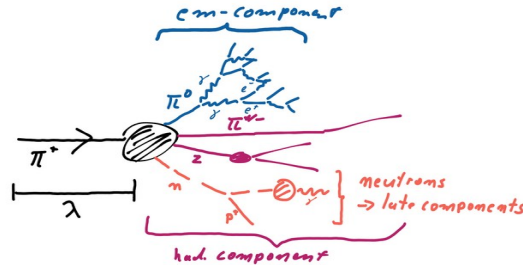 em-component
γ
π⁰
γ
e⁻
e⁺
π⁺
π⁺/⁻
z
n
γ
p⁺
λ
neutrons
→ late components
had. component